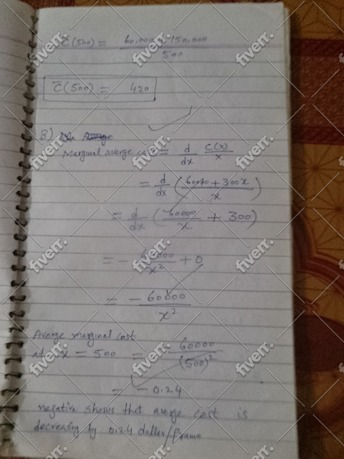 C̅(500) = 60,000 + 150,000
500
C̅(500) = 420
B) Average
Marginal average cost = d/dx C(x)/x
= d/dx (60000+300x / x)
= d/dx (60000/x + 300)
= - 60000/x² + 0
= - 60000/x²
Average marginal cost
at x = 500 = - 60000/(500)²
= -0.24
negative shows that average cost is
decreasing by 0.24 dollar/frame
fiverr.
fiverr.
fiverr.
fiverr.
fiverr.
fiverr.
fiverr.
fiverr.
fiverr.
fiverr.
fiverr.
fiverr.